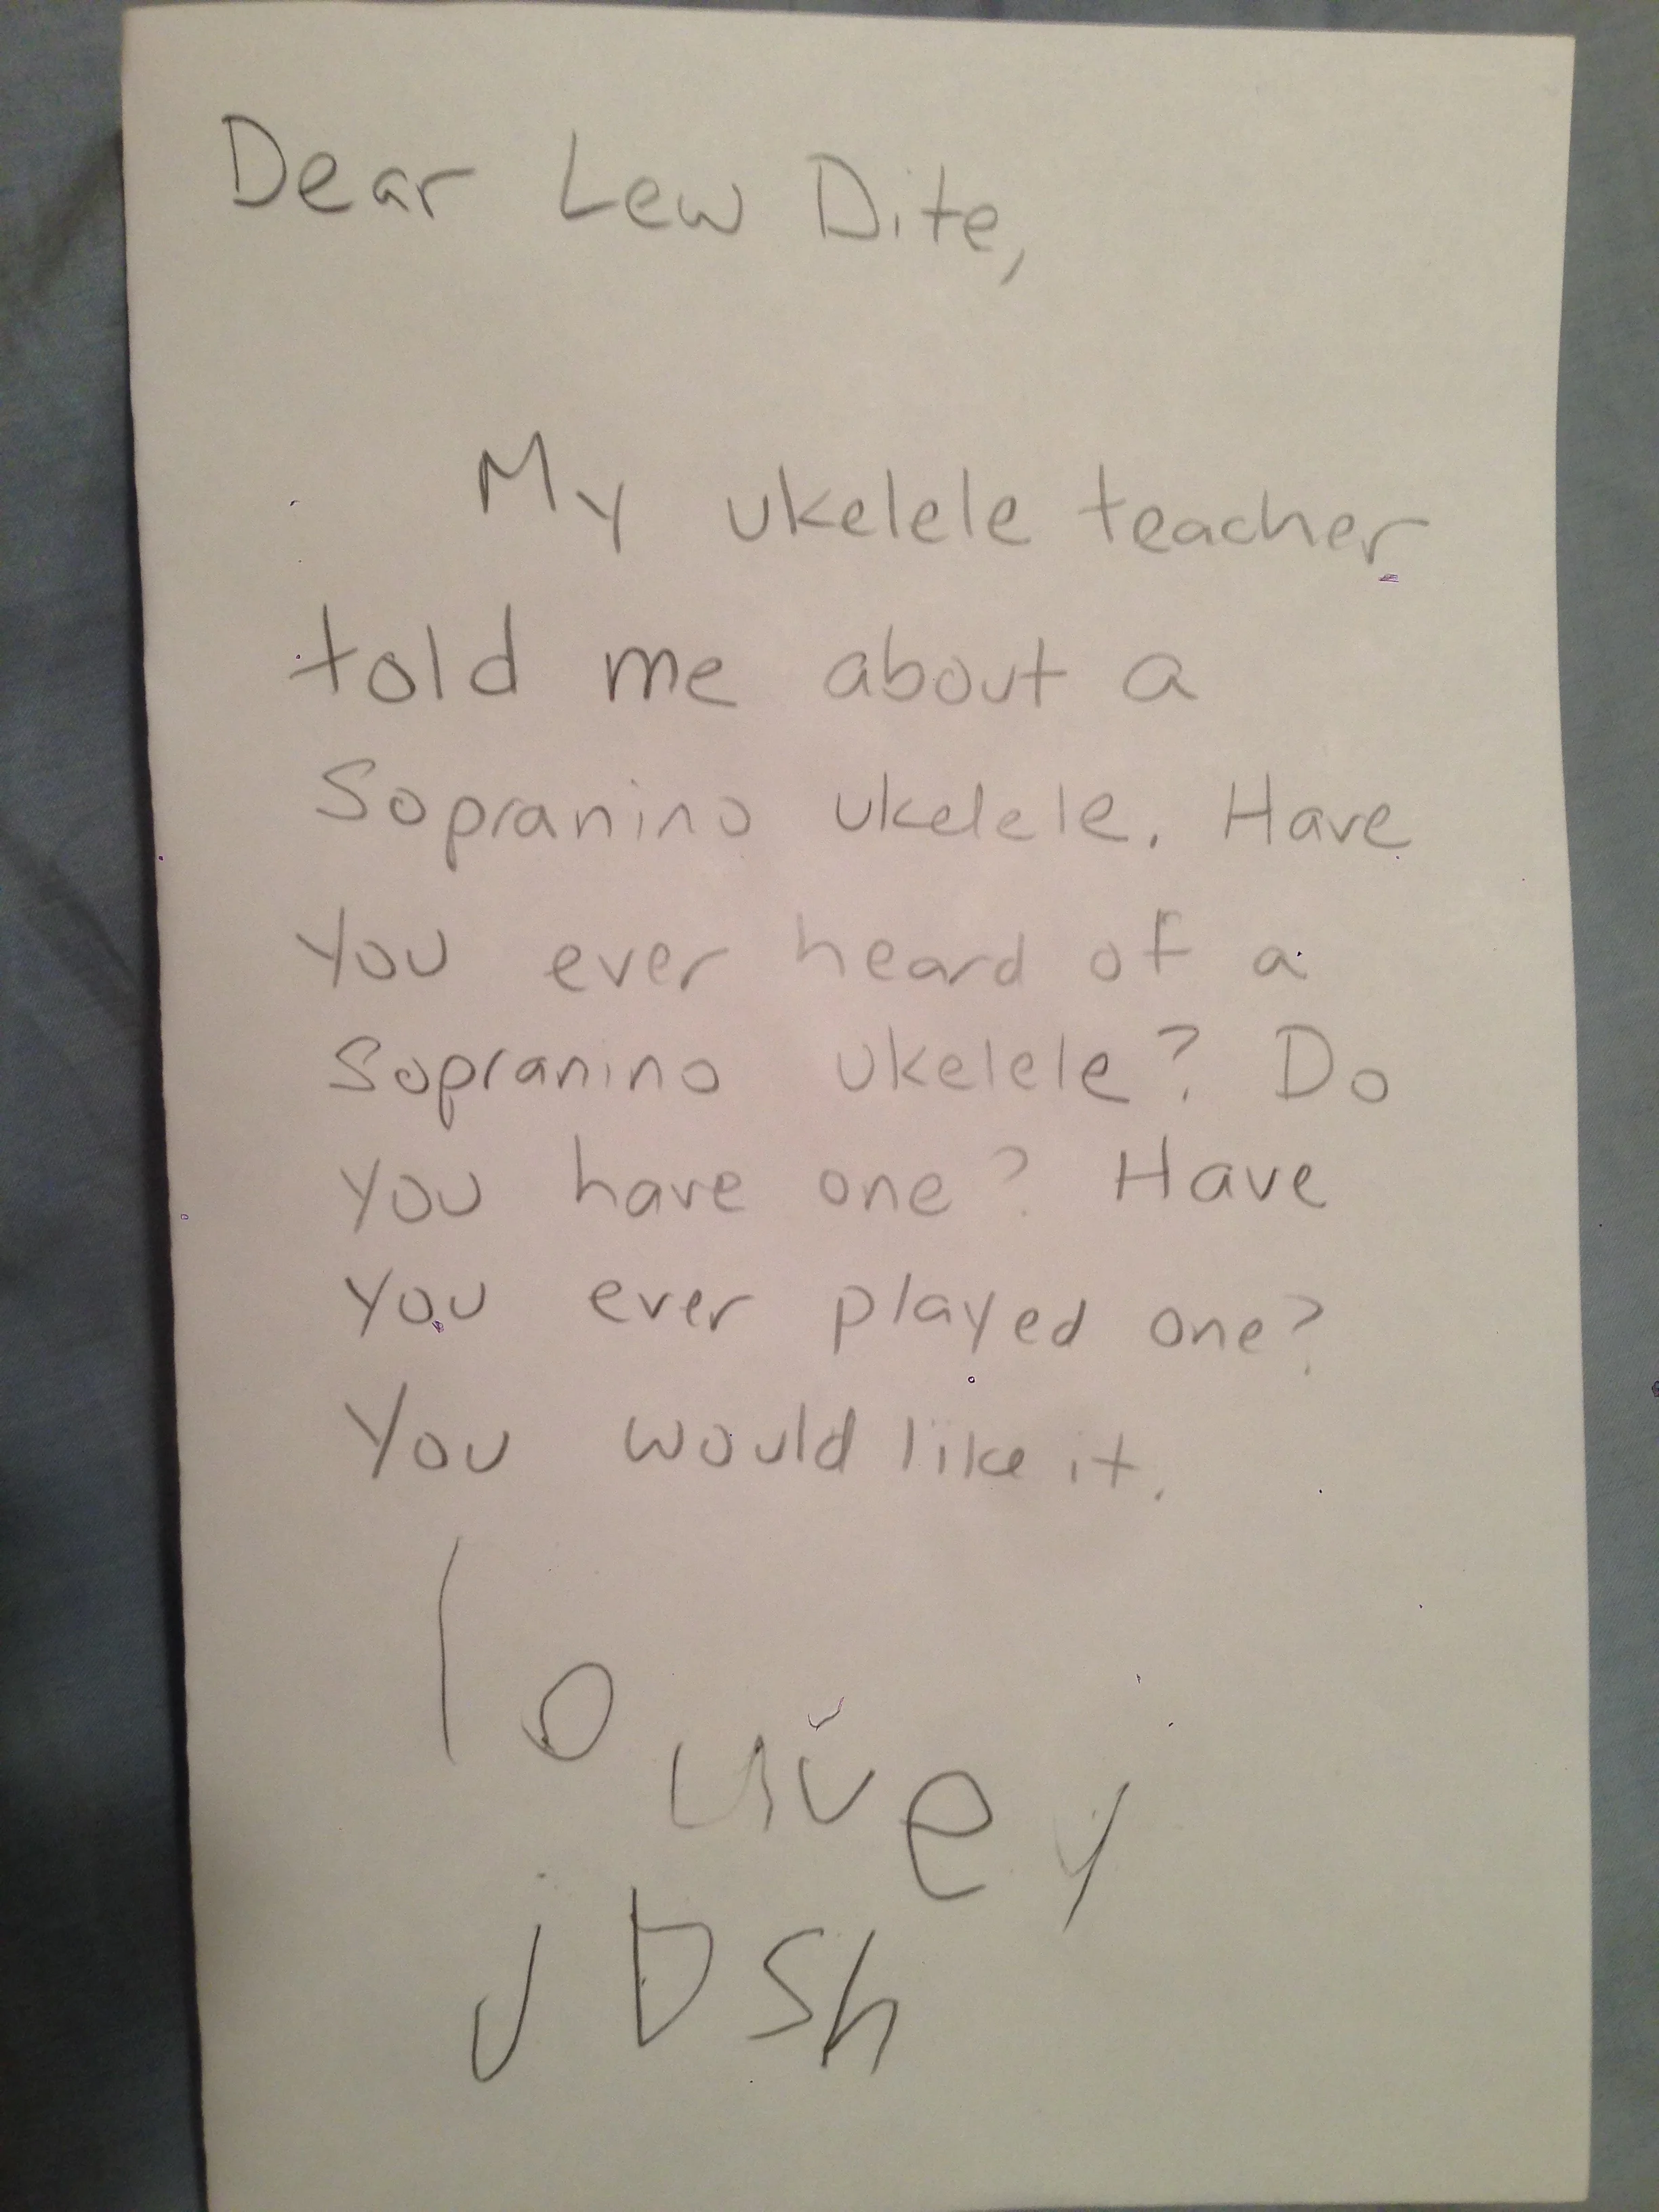 Dear Lew Dite,
My ukelele teacher
told me about a
Sopranino ukelele. Have
you ever heard of a
Sopranino ukelele? Do
you have one? Have
you ever played one?
You would like it.